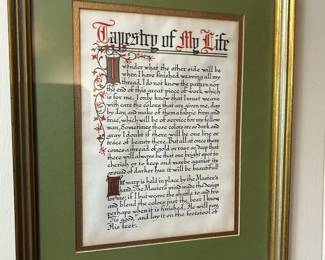 Tapestry of My Life
I wonder what the other side will be
when I have finished weaving all my
thread. I do not know the pattern nor
the end of this great piece of work, which
is for me. I only know that I must weave
with care the colors that are given me, day
by day and make of them a fabric firm and
true, which will be of service for my fellow
man. Sometimes those colors are so dark and
gray I doubt if there will be one line or
trace of beauty there. But all at once there
comes a thread of gold or rose so deep that
there will always be that one bright spot to
cherish or to keep and maybe against its
ground of darker hue it will be beautiful.
The warp is held in place by the Master's
hand. The Master's mind made the design
for me; if I but weave the shuttle to and fro
and blend the colors just the best I know
perhaps when it is finished He will say,
"'Tis good," and lay it on the footstool of
His feet.